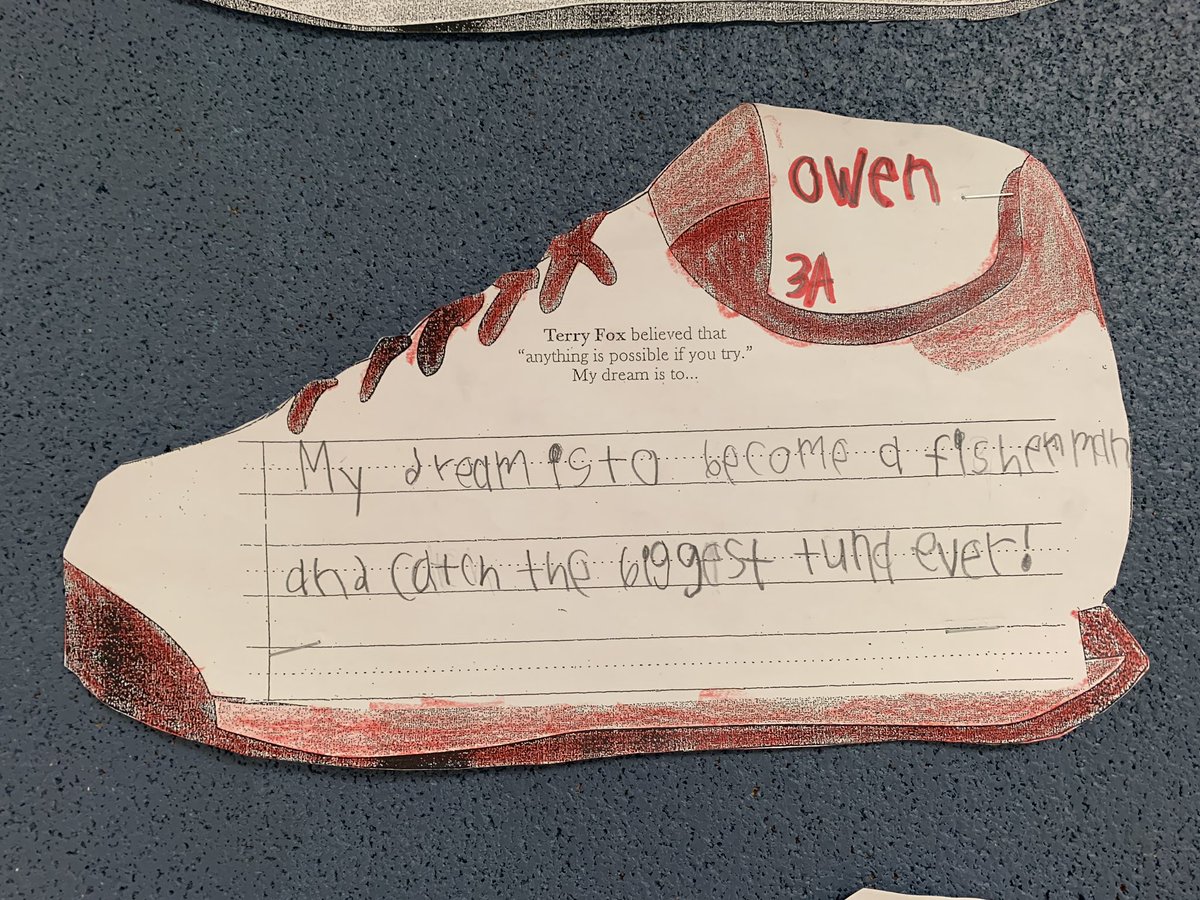 owen
3A
Terry Fox believed that
“anything is possible if you try.”
My dream is to...
My dream is to become a fisherman
and catch the biggest tuna ever!